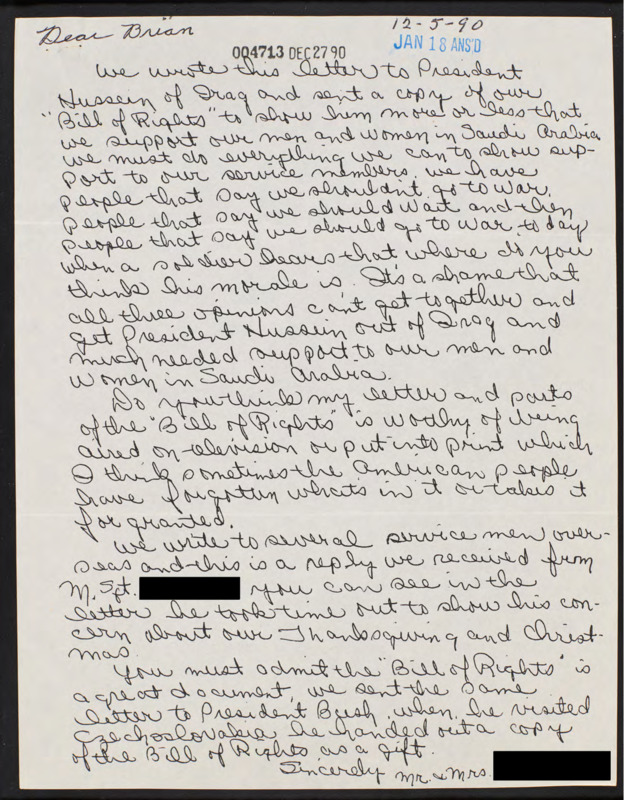 Dear Brian
12-5-90
004713 DEC 27 90
JAN 18 ANS'D
We wrote this letter to President
Hussein of Iraq and sent a copy of our
"Bill of Rights" to show him more or less that
we support our men and women in Saudi Arabia
we must do everything we can to show sup-
port to our service members, we have
people that say we shouldnt go to war,
people that say we should wait and then
people that say we should go to war today
when a soldier hears that where do you
think his morale is. It's a shame that
all three opinions can't get together and
get President Hussein out of Iraq and
much needed support to our men and
women in Saudi Arabia.
Do you think my letter and parts
of the "Bill of Rights" is worthy of being
aired on television or put into print which
I think sometimes the American people
have forgotten whats in it or takes it
for granted.
We write to several service men over-
seas and this is a reply we received from
M. Sgt. you can see in the
letter he took time out to show his con-
cern about our Thanksgiving and Christ-
mas
You must admit the "Bill of Rights" is
a great document, we sent the same
letter to President Bush, when he visited
Czechoslovakia he handed out a copy
of the Bill of Rights as a gift.
Sincerely Mr. & Mrs.